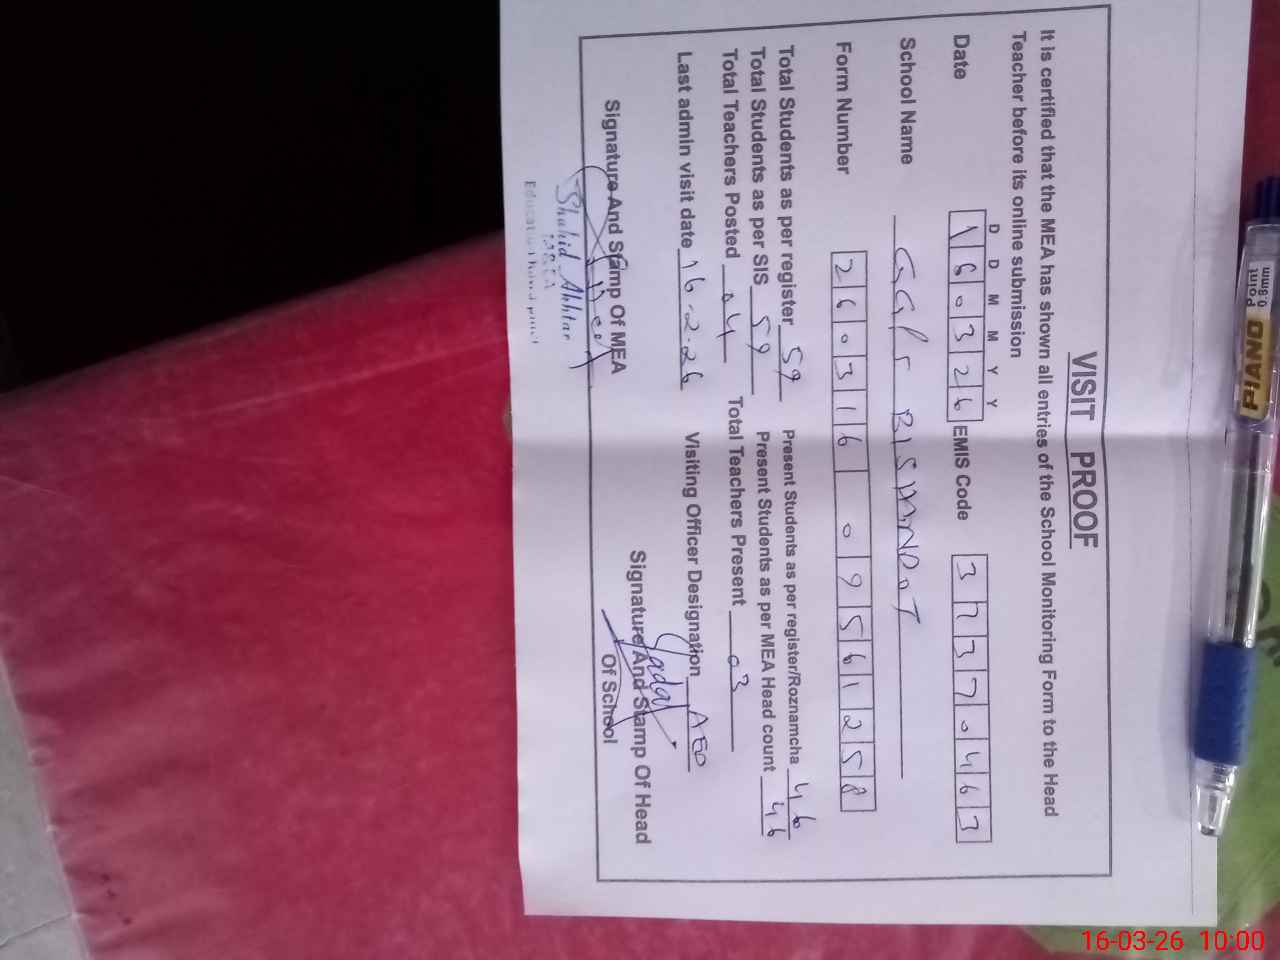 VISIT PROOF
It is certified that the MEA has shown all entries of the School Monitoring Form to the Head
Teacher before its online submission
D D M M Y Y
Date 1 6 0 3 2 6 EMIS Code 3 7 3 7 0 4 6 3
School Name GGPS
Form Number 2 6 0 3 1 6 0 9 5 6 1 2 5 8
Total Students as per register 59 Present Students as per register/Roznamcha 46
Total Students as per SIS 59 Present Students as per MEA Head count 46
Total Teachers Posted 04 Total Teachers Present 03
Last admin visit date 16-2-26 Visiting Officer Designation AEO
Signature And Stamp Of MEA
Signature And Stamp Of Head
Of School
Shahid Akhtar
Education
PIANO
Point
0.8mm
16-03-26 10:00